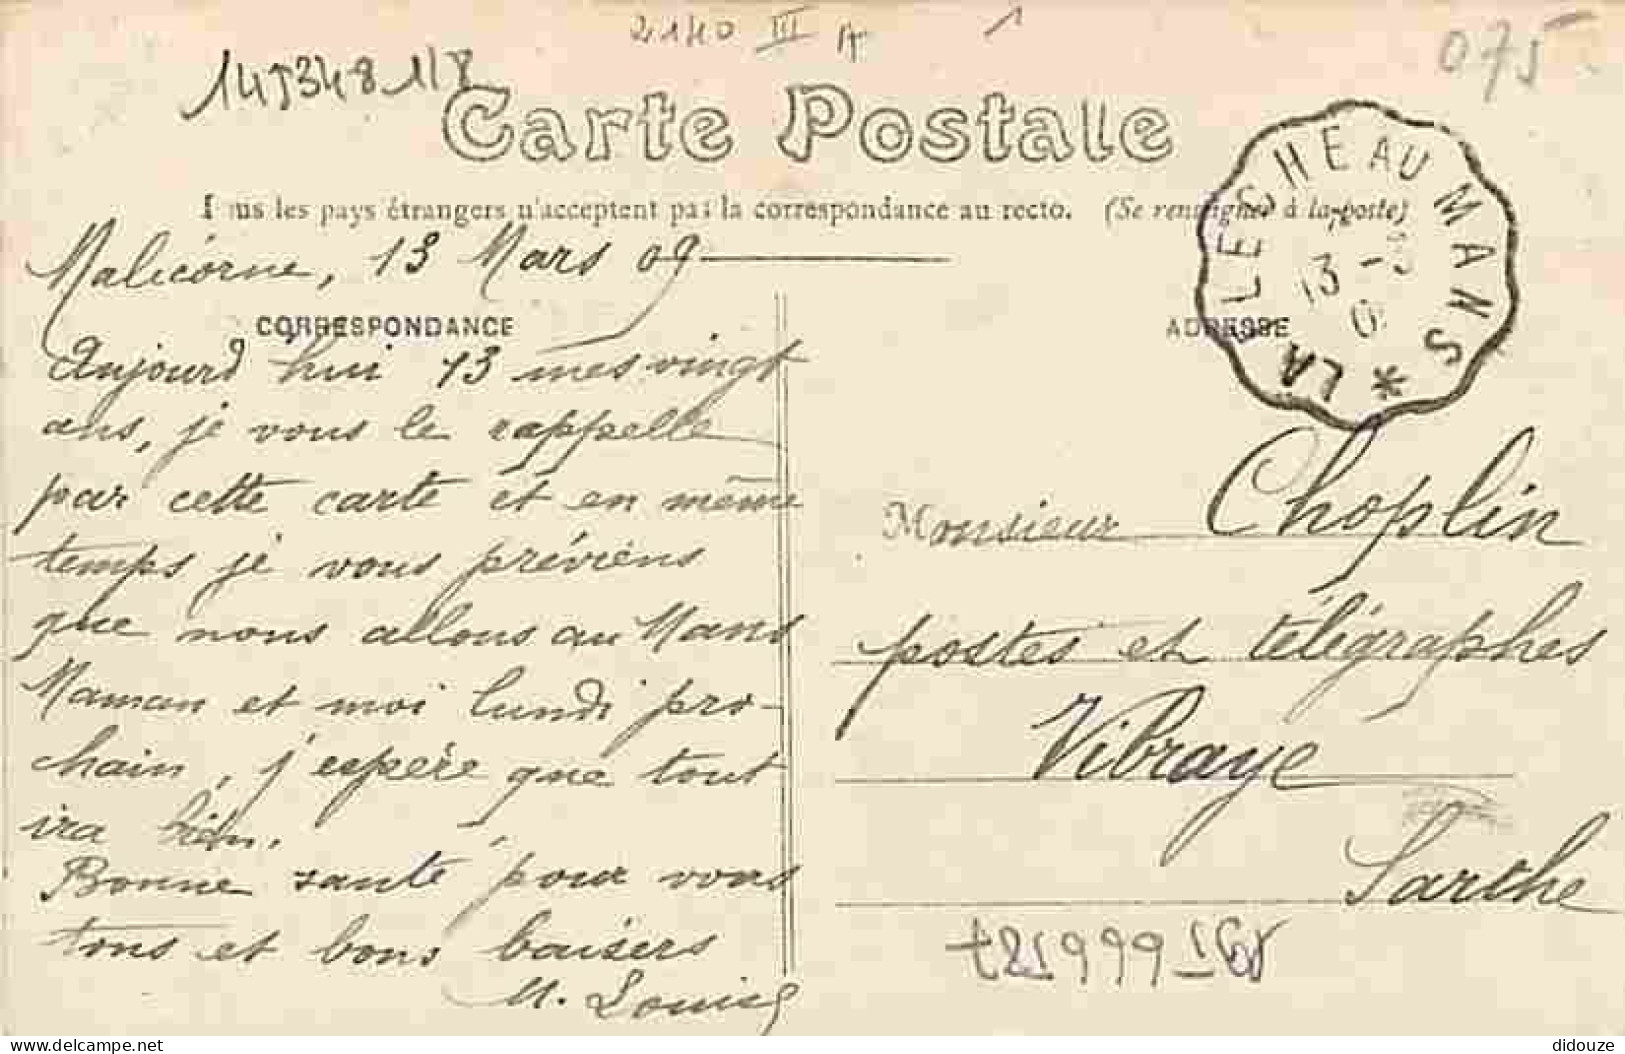 2140 III A 1
075
1453481/8
Carte Postale
Tous les pays étrangers n'acceptent pas la correspondance au recto. (Se renseigner à la poste)
LA FLECHE AU MANS *
13 -3
0
Malicorne, 13 Mars 09
CORRESPONDANCE
ADRESSE
Aujourd hui 13 mes vingt
ans, je vous le rappelle
par cette carte et en même
temps je vous préviens
que nous allons au Mans
Maman et moi lundi pro-
chain, j'espère que tout
ira bien.
Bonne santé pour vous
tous et bons baisers
M. Louise
Monsieur Choplin
postes et télégraphes
Vibraye
Sarthe
https://www.delcampe.net
didouze